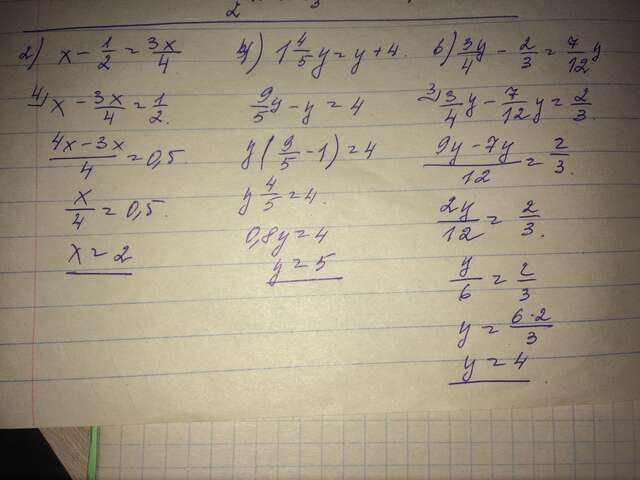 2) x - 1/2 = 3x/4
4) x - 3x/4 = 1/2.
(4x - 3x)/4 = 0,5.
x/4 = 0,5.
x = 2
4) 1 4/5 y = y + 4.
9/5 y - y = 4
y(9/5 - 1) = 4
y 4/5 = 4.
0,8y = 4
y = 5
6) 3/4 y - 2/3 = 7/12 y
3) 3/4 y - 7/12 y = 2/3
(9y - 7y)/12 = 2/3.
2y/12 = 2/3.
y/6 = 2/3
y = 6·2/3
y = 4